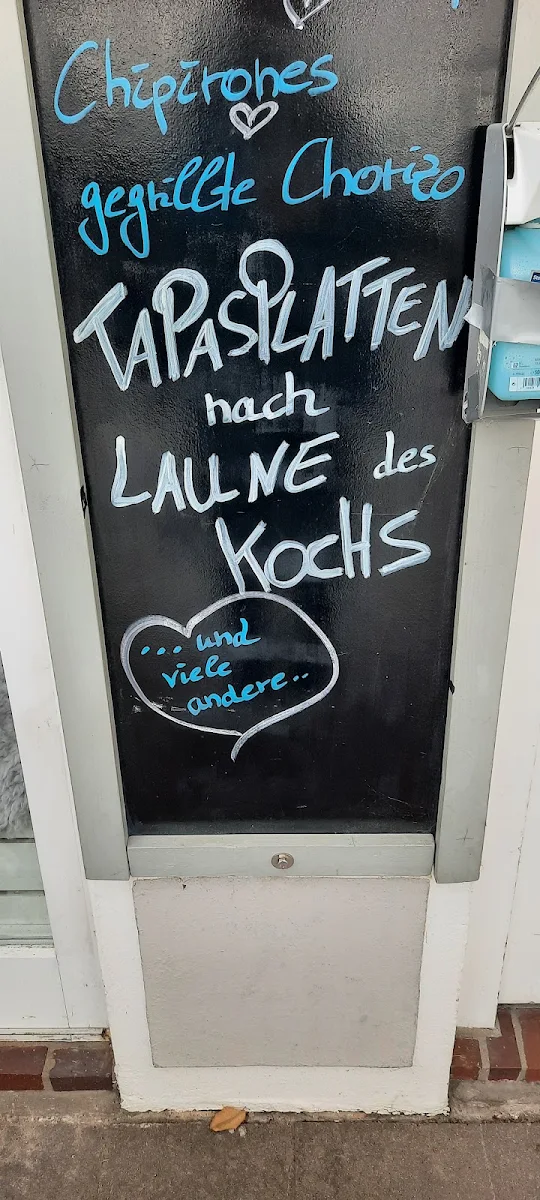 Chipirones
gegrillte Chorizo
TAPASPLATTEN
nach
LAUNE des
KOCHS
... und
viele
andere..